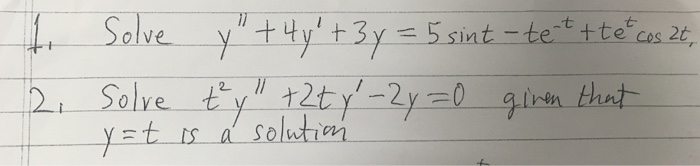 1. Solve y" + 4y' + 3y = 5 sint - te^-t + te^t cos 2t,
2. Solve t²y" + 2ty' - 2y = 0 given that
y = t is a solution